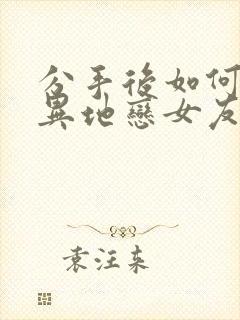 分手後如何
異地戀女友
袁汪东